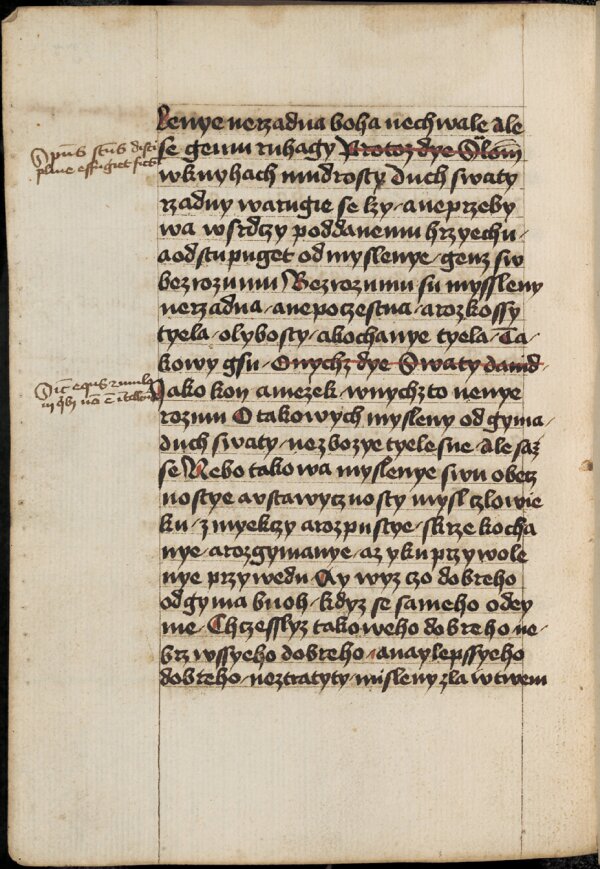 lenye nerzadna boha nechwale Ale
Spūs sctūs disci
pline effugiet fictū
se gemu ruhagy Protoz dye Ssalom̄
wknyhach mudrosty Duch swaty
rzadny warugie se lzy a neprzeby
wa wsrdczy poddanemu hrzyechu
a odstupuget od myslenye genz su
bez rozumu Bez rozumu su myssleny
nerzadna a nepoczestna a rozkossy
tyela olybosty a kochanye tyela Ta
kowy gsu O nychz dye Swaty dauid
Sic̄ equs et mulus
in qͥbꝫ nō ē ītellectus
Jako kon a mezek wnychzto nenye
rozum O takowych mysleny od gyma
duch swaty nez bozye tyelesne Ale saz
se Nebo takowa myslenye swu obecz
nostye a vstawycznosty mysl czlowie
ku zmyekczy a rozpustye skrze kocha
nye a rozgymanye az yku przywole
nye przywedu Ay wyz czo dobreho
odgyma buoh kdyz se sameho odey
me Chczesslyz takoweho dobreho ne
brz wssyeho dobreho a naylepssyeho
dobreho neztratyty misleny zla wtwem